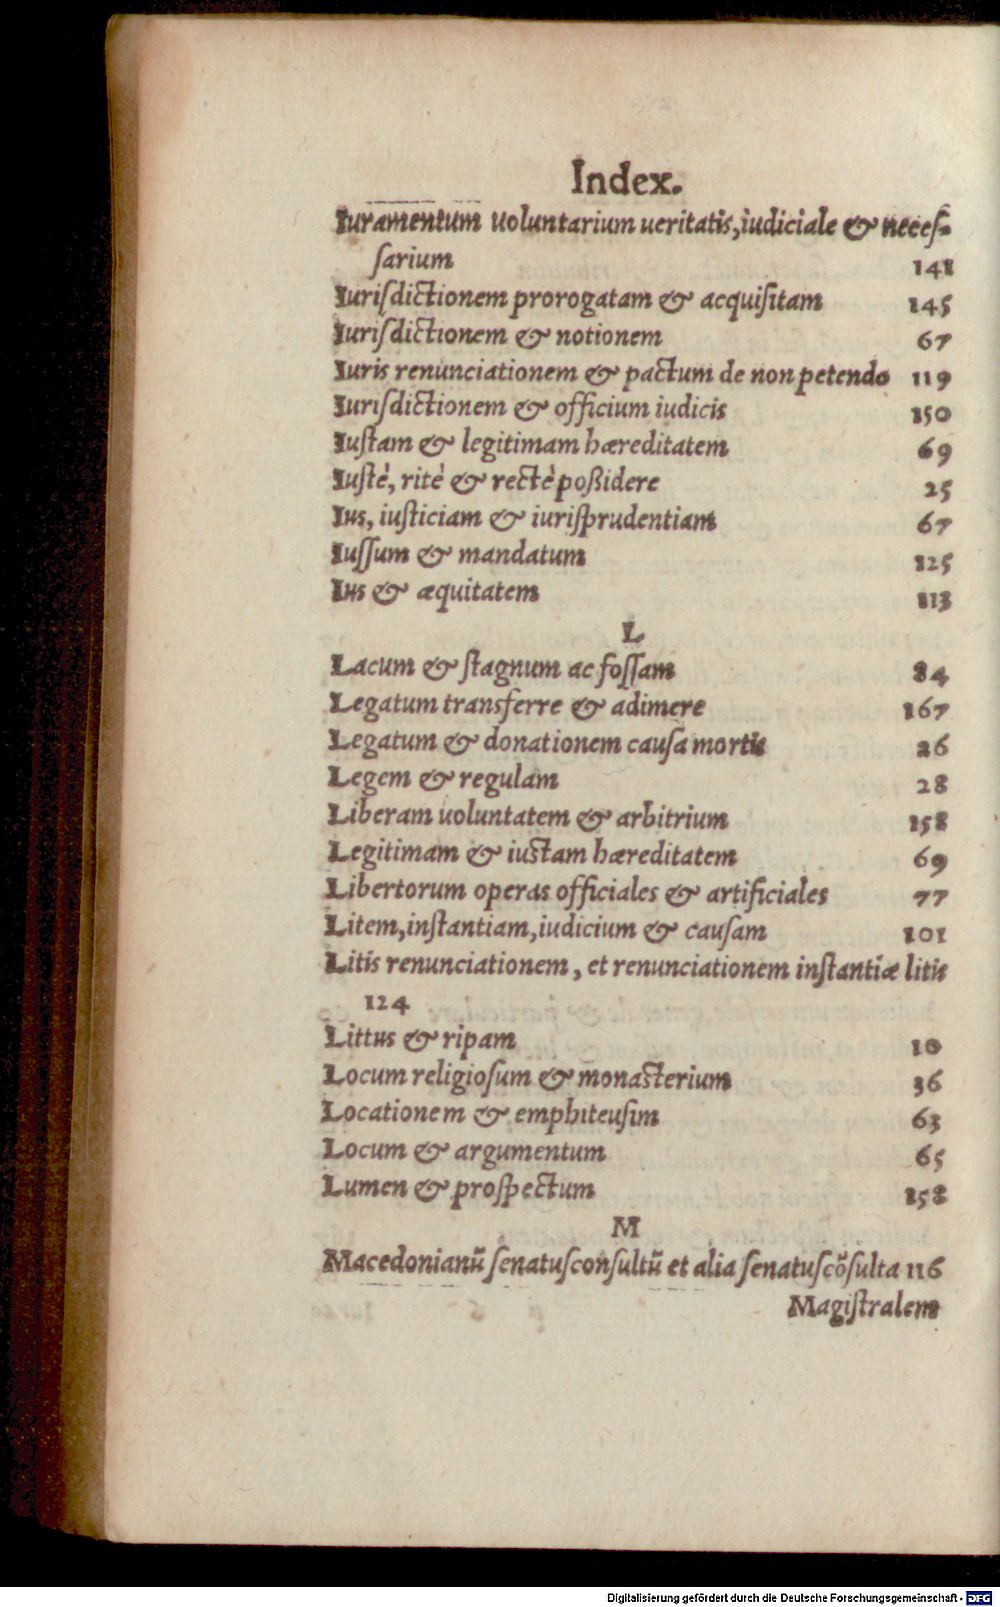 Index.
Iuramentum uoluntarium ueritatis, iudiciale & neces-
sarium 141
Iurisdictionem prorogatam & acquisitam 145
Iurisdictionem & notionem 67
Iuris renunciationem & pactum de non petendo 119
Iurisdictionem & officium iudicis 150
Iustam & legitimam hæreditatem 69
Iustè, ritè & rectè poßidere 25
Ius, iusticiam & iurisprudentiam 67
Iussum & mandatum 125
Ius & æquitatem 113
L
Lacum & stagnum ac fossam 84
Legatum transferre & adimere 167
Legatum & donationem causa mortis 26
Legem & regulam 28
Liberam uoluntatem & arbitrium 158
Legitimam & iustam hæreditatem 69
Libertorum operas officiales & artificiales 77
Litem, instantiam, iudicium & causam 101
Litis renunciationem, et renunciationem instantiæ litis
124
Littus & ripam 10
Locum religiosum & monasterium 36
Locationem & emphiteusim 63
Locum & argumentum 65
Lumen & prospectum 158
M
Macedonianũ senatusconsultũ et alia senatuscõsulta 116
Magistralem
Digitalisierung gefördert durch die Deutsche Forschungsgemeinschaft - DFG